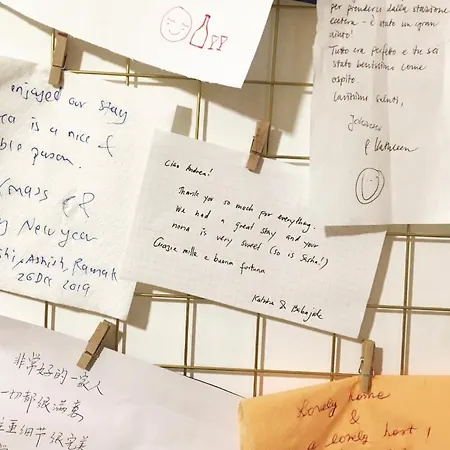 PP
per prenderci dalla stazione
è stato un gran
aiuto!
Tutto era perfetto e tu sei
stato benissimo come
ospite.
Carissimi saluti,
Johannes
& Kathleen
enjoyed our stay
is a nice &
person.
Xmas &
New year
Ashish, Raunak
26 Dec 2019
Ciao Andrea!
Thank you so much for everything.
We had a great stay and your
nonna is very sweet (so is Sascha!)
Grazie mille e buona fortuna
&
非常好的一家人
一切都很满意
重细节很完美
Lovely home
&
a lovely host!